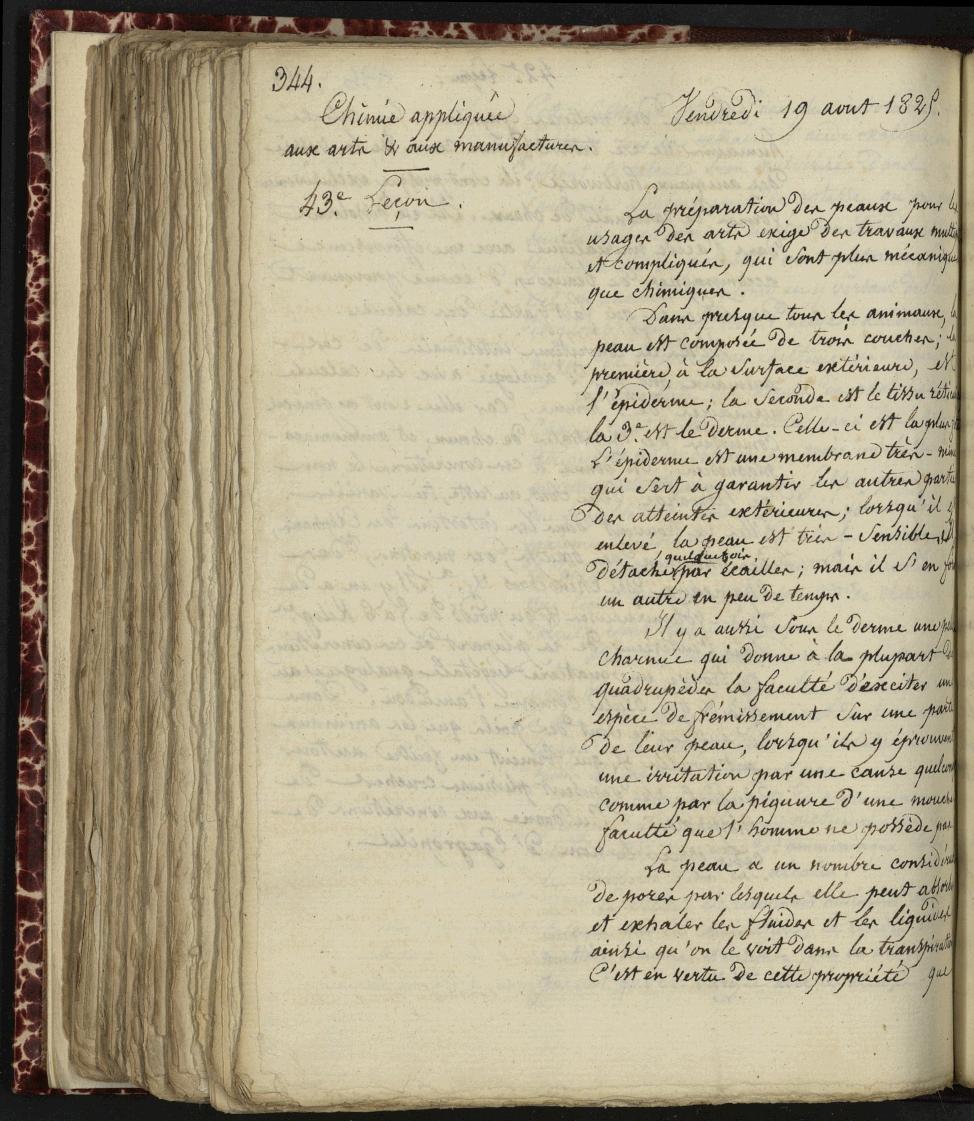 344.
Chimie appliquée
aux arts & aux manufactures.
Vendredi 19 aout 1825.
43.e Leçon.
La préparation des peaux pour
usages des arts exige des travaux
et compliqués, qui sont plus
que chimiques.
Dans presque tous les animaux,
peau est composée de trois couches;
première, à la surface extérieure,
l'épiderme; la seconde est le tissu
la 3.e est le derme. Celle-ci est la plus
L'épiderme est une membrane très-
qui sert à garantir les autres
des atteintes extérieures; lorsqu'il
enlevé la peau est très-sensible,
détache quelquefois par écailles; mais il s'en
un autre en peu de temps.
Il y a aussi sous le derme une
charnue qui donne à la plupart
quadrupèdes la faculté d'exciter un
espèce de frémissement sur une
de leur peau, lorsqu'ils y
une irritation par une cause
comme par la piquure d'une
faculté que l'homme ne possède pas
La peau a un nombre
de pores par lesquels elle peut
et exhaler les fluides et les liquides
ainsi qu'on le voit dans la
C'est en vertu de cette propriété que